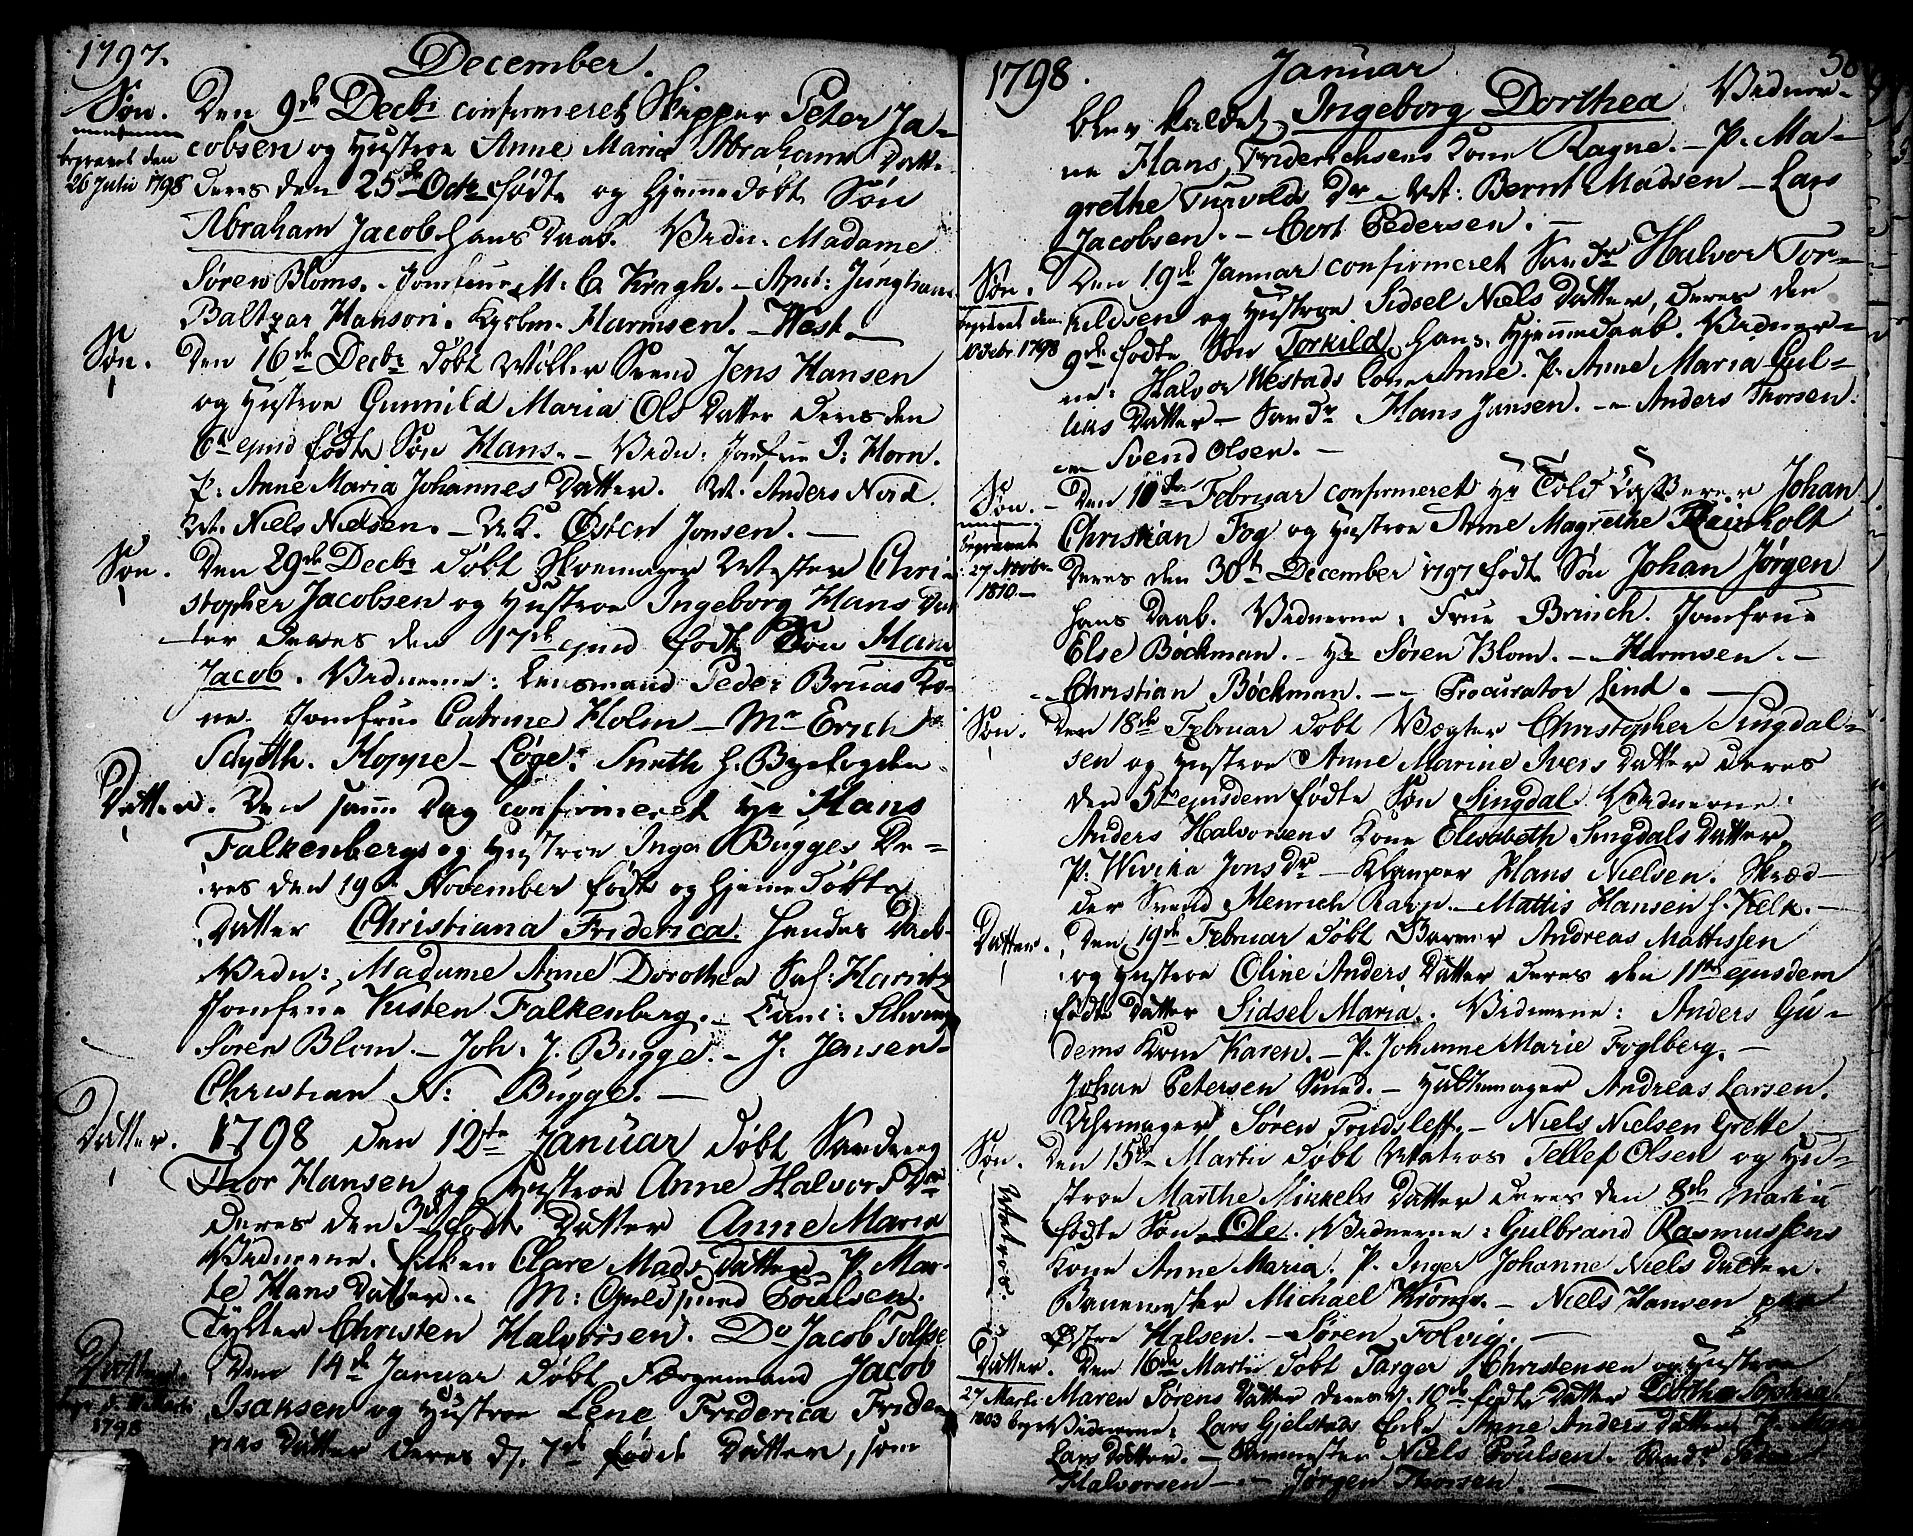 1797.
December.
Søn.
begravet den
26 Julii 1798
Den 9de Decbr confirmeret Skipper Peter Ja-
cobsen og Hustroe Anne Maria Abrahams Datter
deres den 25de Octr fødte og hjemmedøbt Søn
Abraham Jacob hans Daab. Vidn. Madame
Søren Bloms. Jomfrue M. C. Kragh. - Junghans
Baltzar Hanson. Kjøbm. Harmsen. - West.
Søn.
Den 16de Decbr døbt Møller Svend Jens Hansen
og Hustroe Gunnild Maria Ols Datter deres den
6te ejusd fødte Søn Hans. - Vidn: Jomfrue I: Horn.
P: Anne Maria Johannes Datter. M. Anders Nerd.
M. Niels Nielsen. - U.K. Østen Jonsen. -
Søn.
Den 29de Decbr døbt Skoemager Mester Chri-
stopher Jacobsen og Hustroe Ingeborg Hans Dat-
ter deres den 17de ejusd fødte Søn Hans
Jacob. Vidnerne: Lensmand Peder Bruas Ko-
ne. Jomfrue Catrine Holm - Mr Erich
Schyth. Hoppe - Løge. Smith h. Byefogden
Datter.
Den samme Dag confirmeret Hr Hans
Falkenbergs og Hustroe Inger Bugges De-
res den 19de November fødte og hjemmedøbte
Datter Christiana Friderica. Hendes Daab.
Vidn: Madame Anne Dorothea Sal: Harnitz
Jomfrue Kirsten Falkenberg. - Canc: Schweng
Søren Blom. - Joh. J. Bugge. - J. Jensen -
Christian N: Bugge. -
Datter.
1798 den 12te Januar døbt Sandreng
Thor Hansen og Hustroe Anne Halvors Dr
deres den 3de fødte Datter Anne Maria
Vidnerne. Enken Clare Mads Datter P. Mar-
te Hans Datter. - M: Guldsmed Poulsen.
Tyfter Christen Halvorsen. Do Jacob Tolfse
Datter
begr. d. Martii
1798
Den 14de Januar døbt Færgemand Jacob
Isaksen og Hustroe Lene Friderica Frideric-
nes Datter deres d. 7de fødte Datter, som
1798.
Januar
58
blev kaldet Ingeborg Dorthea. Vidner-
ne Hans Friderichsens Kone Ragne. - P. Ma-
grethe Turvilds Dr - M: Bernt Madsen - Lars
Jacobsen. - Cort Pedersen. -
Søn.
begravet den
Octbr 1798
Den 19de Januar confirmeret Sandr Halvor Tor-
kildsen og Hustroe Sidsel Niels Datter, deres den
9de fødte Søn Torkild, hans Hjemmedaab. Vidner-
ne: Halvor Westads Kone Anne. P. Anne Maria Gul-
liks Datter - Sandr Hans Jansen. - Anders Thorsen.
Svend Olsen. -
Søn.
begravet
27 Novbr
1810 -
Den 10de Februar confirmeret Hr Told Casserer Johan
Christian Fog og Hustroe Anne Magrethe Reinholt
Deres den 30te December 1797 fødte Søn Johan Jørgen
hans Daab. Vidnerne: Frue Brinch. Jomfrue
Else Bøckman. - Hr Søren Blom. - Harmsen. -
Christian Bøckman. - Procurator Lind. -
Søn.
Den 18de Februar døbt Vægter Christopher Singdal-
sen og Hustroe Anne Marine Ivers Datter deres
den 5te ejusdem fødte Søn Singdal Vidnerne:
Anders Halvorsens Kone Elisabeth Singdals Datter.
P. Wivika Jons Dr - Klamper Hans Nielsen. Skræd-
der Svend Henrich Ravn. - Mattis Hansen h. Kelk. -
Datter.
Den 19de Februar døbt Andreas Mattissen
og Hustroe Oline Anders Datter deres den 11te ejusdem
fødte Datter Sidsel Maria. Vidnerne: Anders Gu-
dems Kone Karen. - P. Johanne Marie Foglberg. -
Johan Petersen Smed. - Hattemager Andreas Larsen.
Uhrmager Søren Trudslett. - Niels Nielsen Grette
Søn.
Matros.
Den 15de Martii døbt Matros Tellef Olsen og Hu-
stroe Marthe Mikkels Datter deres den 8de Martii
fødte Søn Ole. Vidnerne: Gulbrand Rasmussens
Kone Anne Maria. P. Inger Johanne Niels Datter.
Banemester Michael - Niels Hansen paa
Østre Halsen. - Søren Folvig. -
Datter.
27 Martii
1803 begr
Den 16de Martii døbt Targer Christensen og Hustroe
Maren Sørens Datter deres d. 10de fødte Datter Sophia
Vidnerne: Lars Gjelstads Enke Anne Anders Datter P. Maria
Lars Datter. - Niels Poulsen. Sandr Peder
Halvorsen - Jørgen Thorsen. -